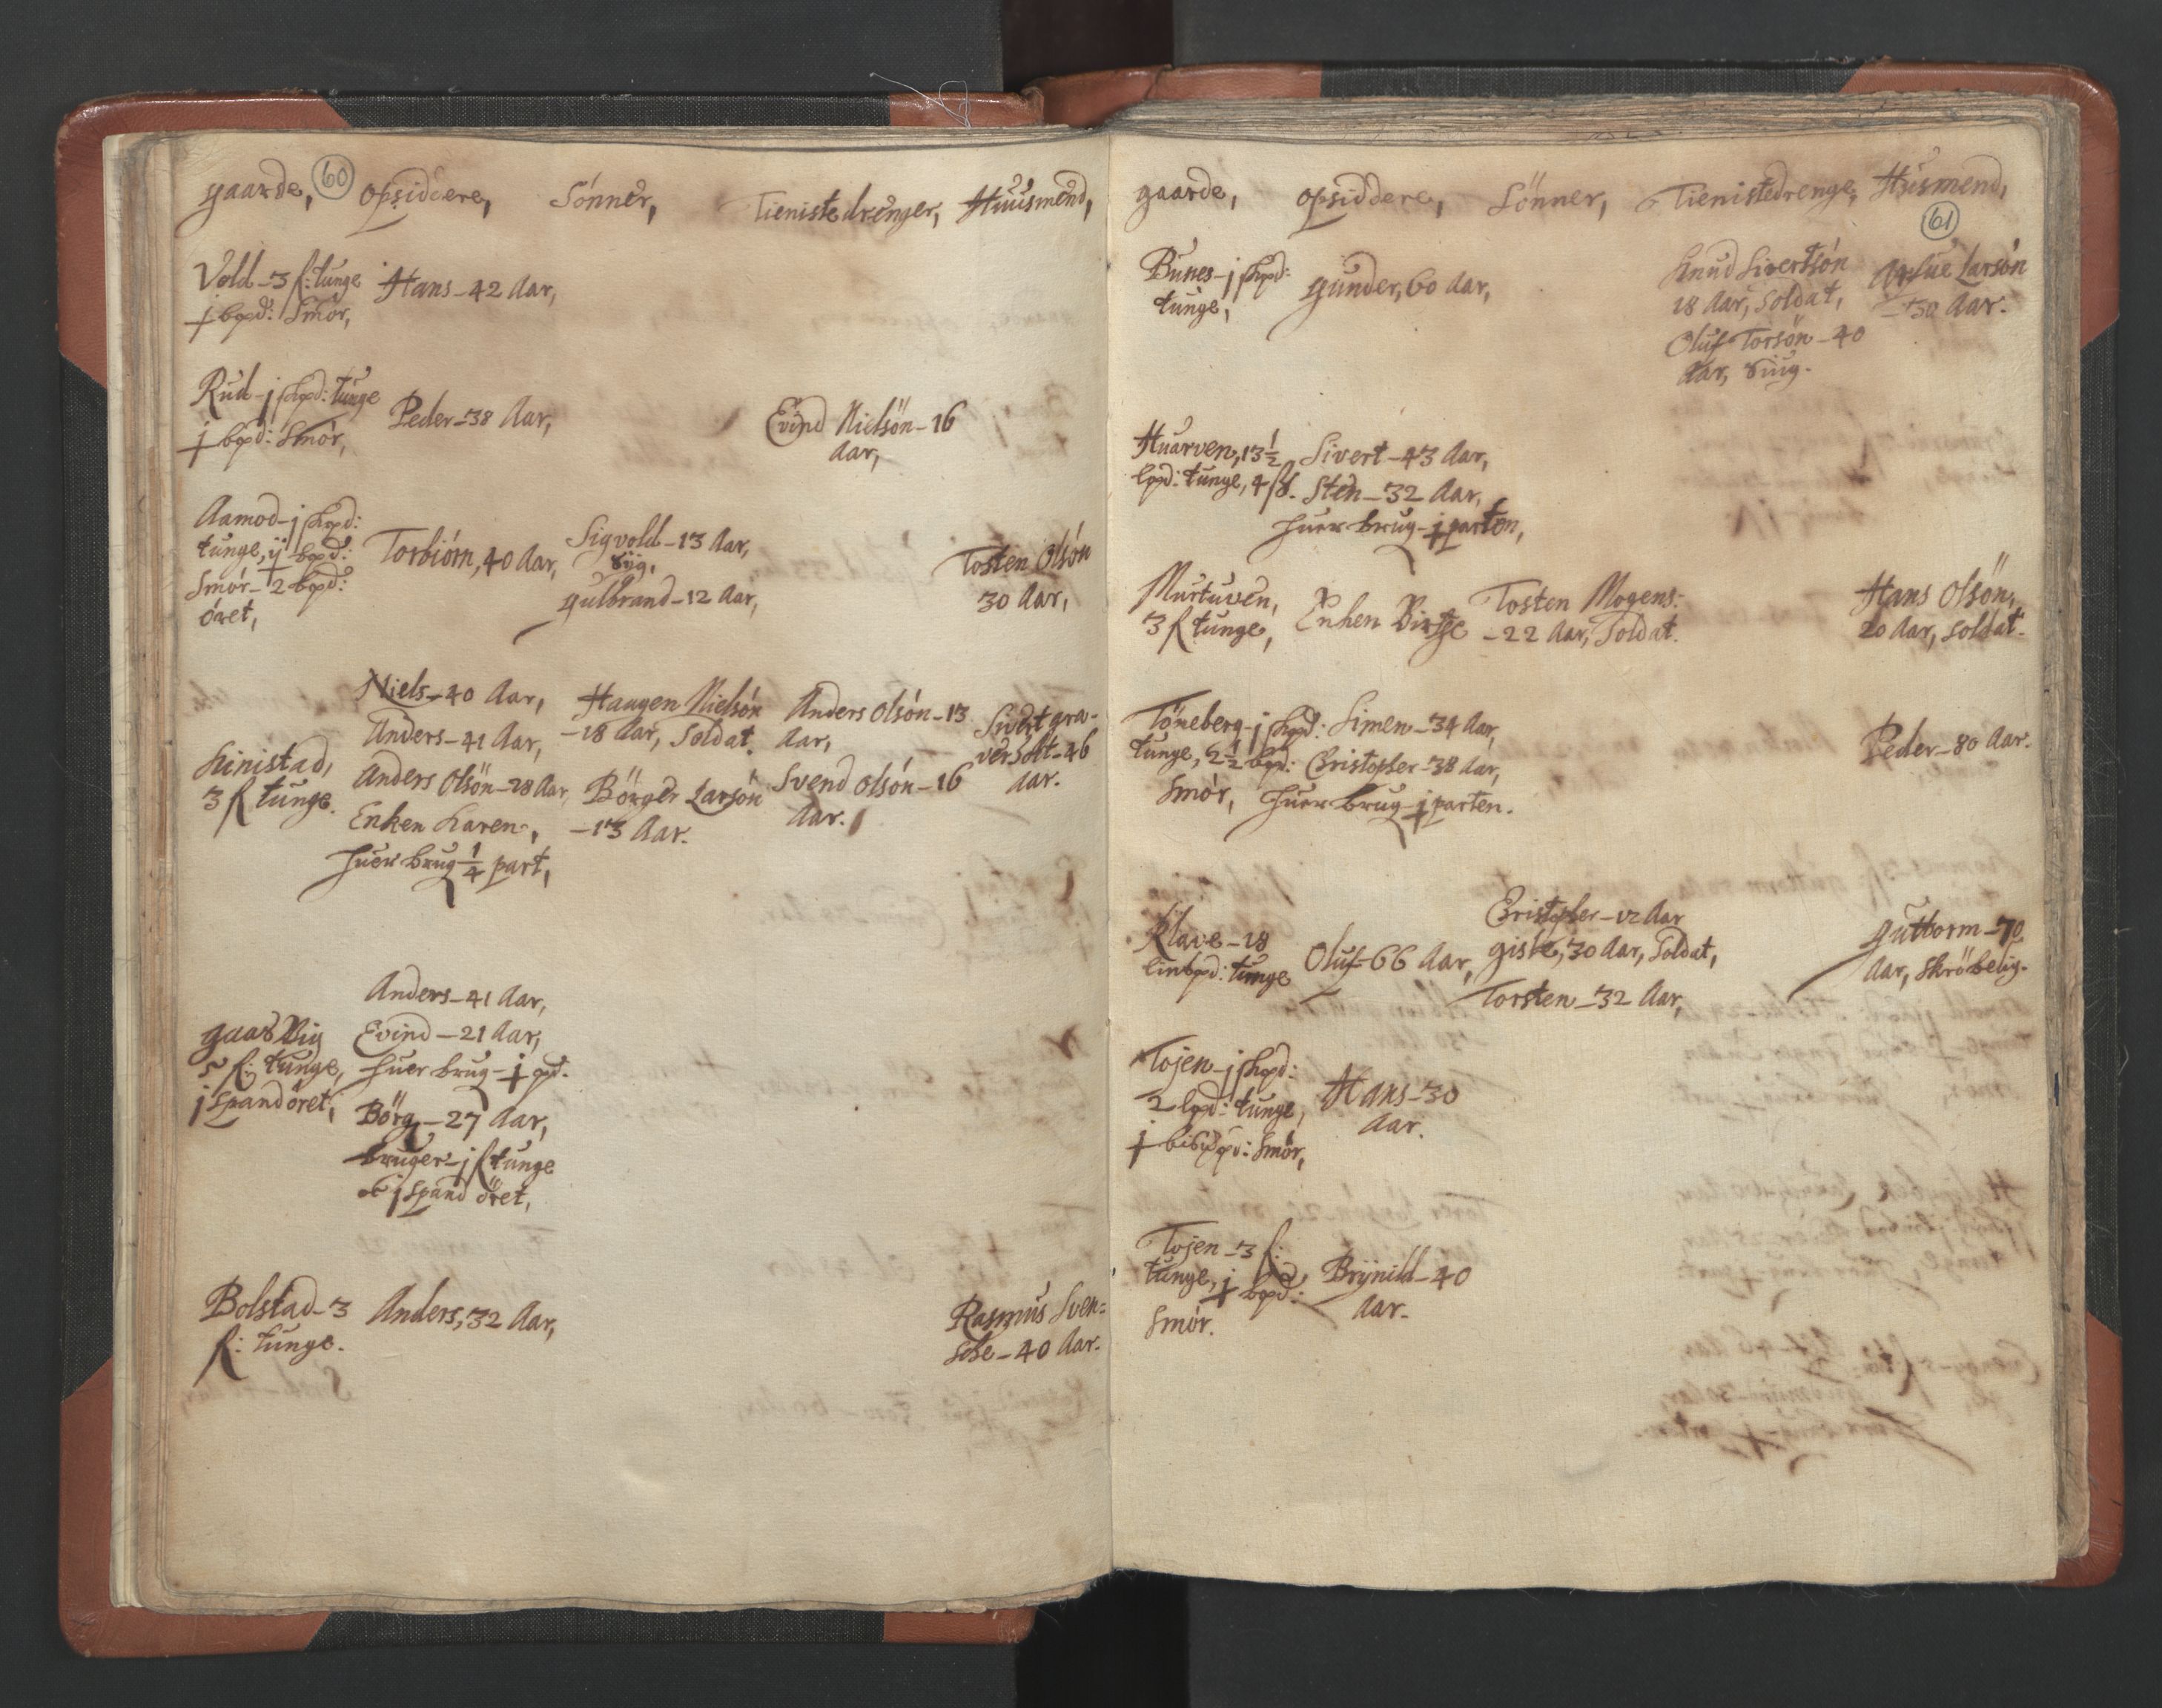 gaarde, 60 opsiddere, Sönner, Tienistedrenger, Huusmend,
Vold - 3 f: tunge Hans - 42 Aar,
j bpd: Smör,
Rud - j skpd: tunge Peder - 38 Aar, Evind Nielsön - 16
j bpd: Smör, Aar,
Aamod - j skpd:
tunge, ij bpd: Torbiörn, 40 Aar,
Smör - 2 bpd:
öret,
Sigvold - 13 Aar,
Siig,
gulbrand - 12 Aar,
Tosten Olsön
30 Aar,
Kinistad,
3 f tunge.
Niels - 40 Aar,
Anders - 41 Aar,
Anders Olsön - 28 Aar,
Enken Karen,
huer brug 1/4 part,
Haagen Nielsön
- 18 Aar, Soldat,
Börger Larsön
- 13 Aar.
Anders Olsön - 13
Aar,
Svend Olsön - 16
Aar.
Sivert gra-
ver - 46
Aar.
5 f: tunge,
j spand öret,
Anders - 41 Aar,
Evind - 21 Aar,
huer brug - j pd.
Börg - 27 Aar,
bruger - j f tunge
oc j spand öret,
Bolstad - 3 Anders, 32 Aar,
f: tunge.
Rasmus Sven=
sche - 40 Aar.
gaarde, opsiddere, Sönner, Tienistedrenge, Husmend,
61
Bunes - j skpd:
tunge,
gunder, 60 Aar,
Knud Sivertsön
18 Aar, Soldat,
Oluf Torsön - 40
Aar, Siug.
Larsön
- 30 Aar.
Huarven, 13 1/2 Sivert - 43 Aar,
lpd: tunge, 4 sk. Sten - 32 Aar,
huer brug - j parten,
Murtuven,
3 f tunge,
Enken Birte
Tosten Mogens:
- 22 Aar, Soldat.
Hans Olsön,
20 Aar, soldat.
Töneberg - j skpd: Simen - 34 Aar,
tunge, 2 1/2 bpd: Christopher - 38 Aar,
Smör, huer brug - j parten.
Peder - 80 Aar.
Klave - 18
tunge
Oluf - 66 Aar,
Christopher - 12 Aar
giste, 30 Aar, Soldat,
Torsten - 32 Aar,
guttorm - 70
Aar, Skröbelig.
Tojen - j skpd:
2 lpd: tunge,
j bismpd: Smör,
Hans - 30
Aar.
Tojen - 3 f:
tunge, j bpd:
Smör.
Brÿnild - 40
Aar.